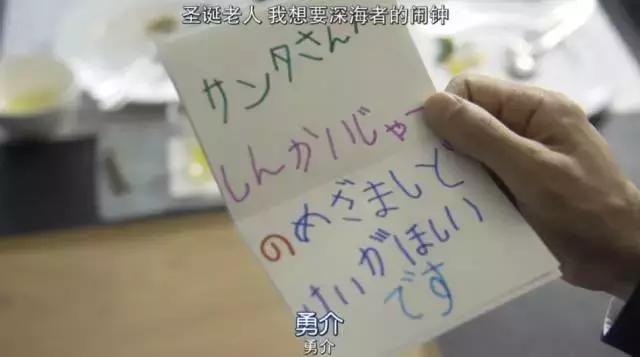 圣诞老人 我想要深海者的闹钟
サンタさん
しんかいじゃー
のめざましど
けいがほしい
です
勇介
勇介